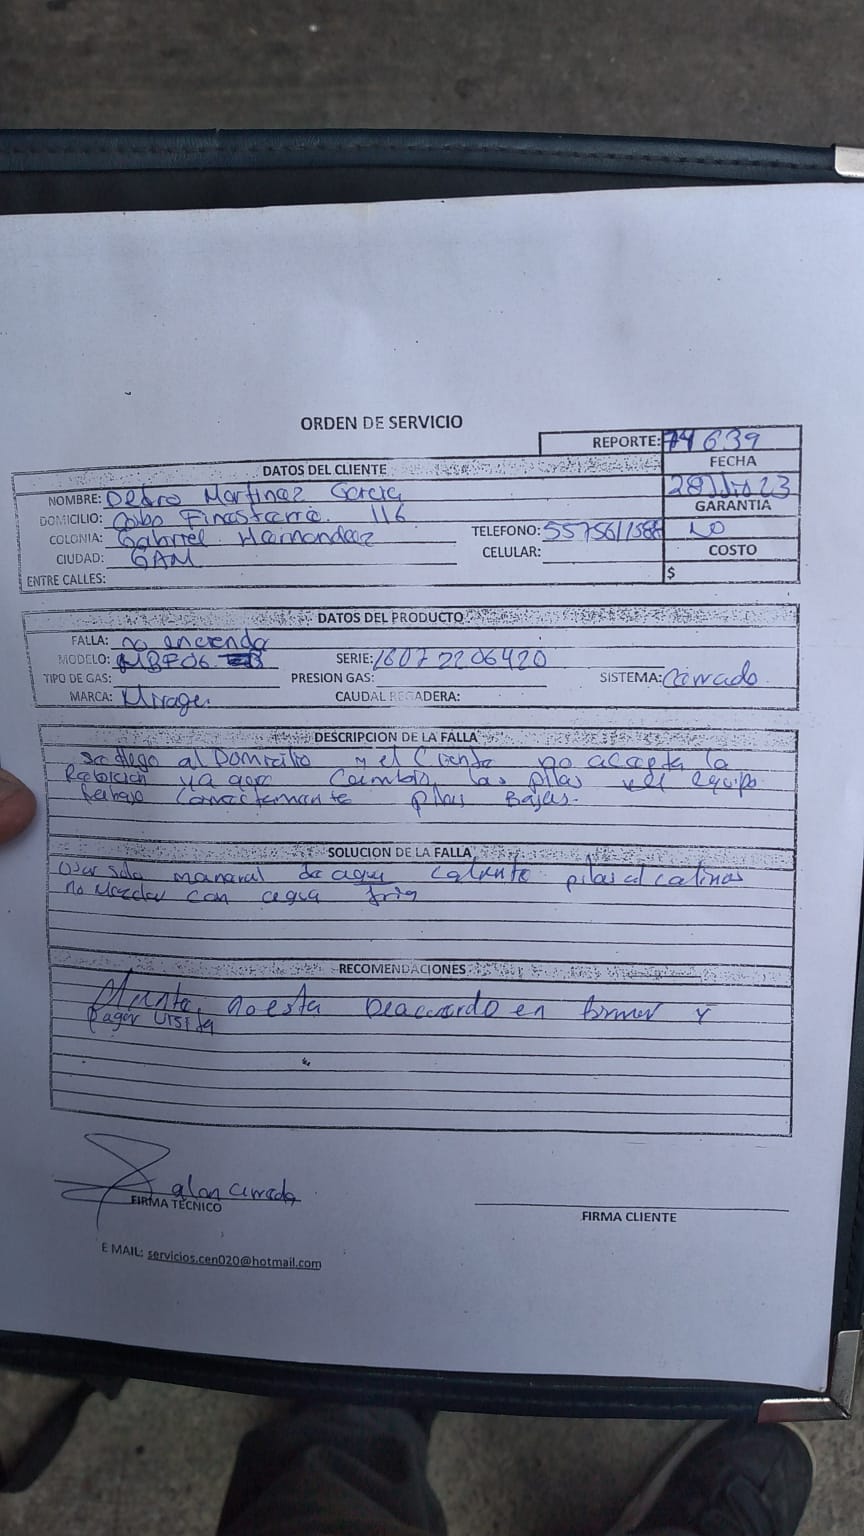 ORDEN DE SERVICIO
REPORTE: 74639
DATOS DEL CLIENTE
FECHA
NOMBRE: Pedro Martinez Garcia
28 Julio 23
DOMICILIO: Cabo Finasterre 116
GARANTIA
COLONIA: Gabriel Hernandez
TELEFONO: 5575611588
NO
CIUDAD: GAM
CELULAR:
COSTO
ENTRE CALLES:
$
DATOS DEL PRODUCTO
FALLA: no encendo
MODELO: MBF06
SERIE: 16072206420
TIPO DE GAS:
PRESION GAS:
SISTEMA: Cerrado
MARCA: Mirage
CAUDAL REGADERA:
DESCRIPCION DE LA FALLA
se llego al Domicilio y el Cliente no acepta la
ya que Cambio las pilas y el equipo
trabajo Correctamente pilas Bajas.
SOLUCION DE LA FALLA
Usar solo maneral de agua caliente pilas alcalinas
no Mezclar con agua fria
RECOMENDACIONES
Cliente no esta Deacuerdo en firmar y
pagar Visita
alan
FIRMA TÉCNICO
FIRMA CLIENTE
E MAIL: servicios.cen020@hotmail.com